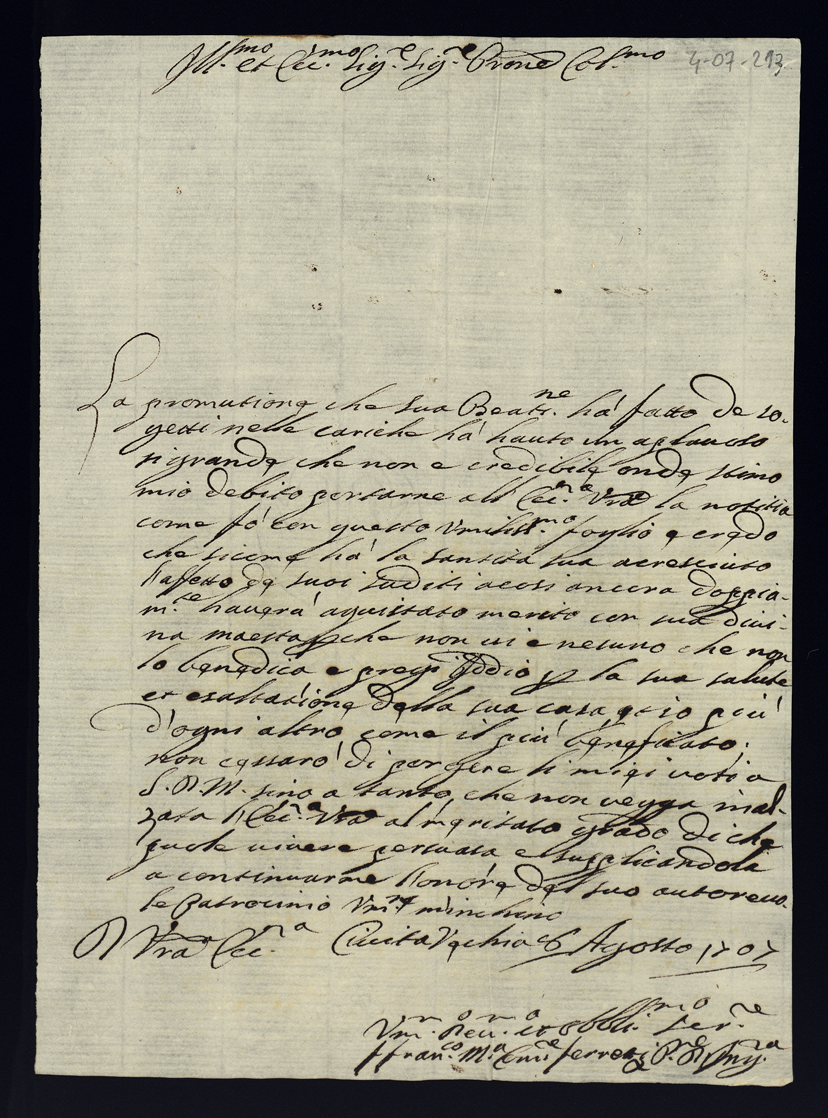 Ill.mo et Ecc.mo Sig.e Sig.e Prone Col.mo
4-07-213
La promutione che sua Beat.ne há fatto de so-
getti nelle cariche há hauto un aplauso
si grande che non e credibile onde stimo
mio debito portarne all Ecc.za Vra la notitia
come fó con questo Vmiliss.mo foglio e credo
che sicome há la santita sua acresciuto
l'affetto de suoi suditi acosi ancora doppia-
m.te haverá aquistato merito con sua divi-
na maesta che non vi e nesuno che non
lo benedica e preghi Iddio p la sua salute
et esaltatione della sua casa et io piu'
d'ogni altro come il piu' beneficato;
non cessaró di porgere li miei voti a
S. D. M. sino a tanto che non vegga inal-
zata l'Ecc.za Vra al meritato grado di che
puole vivere persuasa e suplicandola
a continuarme l'honore del suo autorevo-
le Patrocinio Vm.te m'inchino
D Vra Ecc.za Civita Vechia 6 Agosto 1707
Vm.o et Obblig.mo Ser.re
ffran.co M.a ferreri